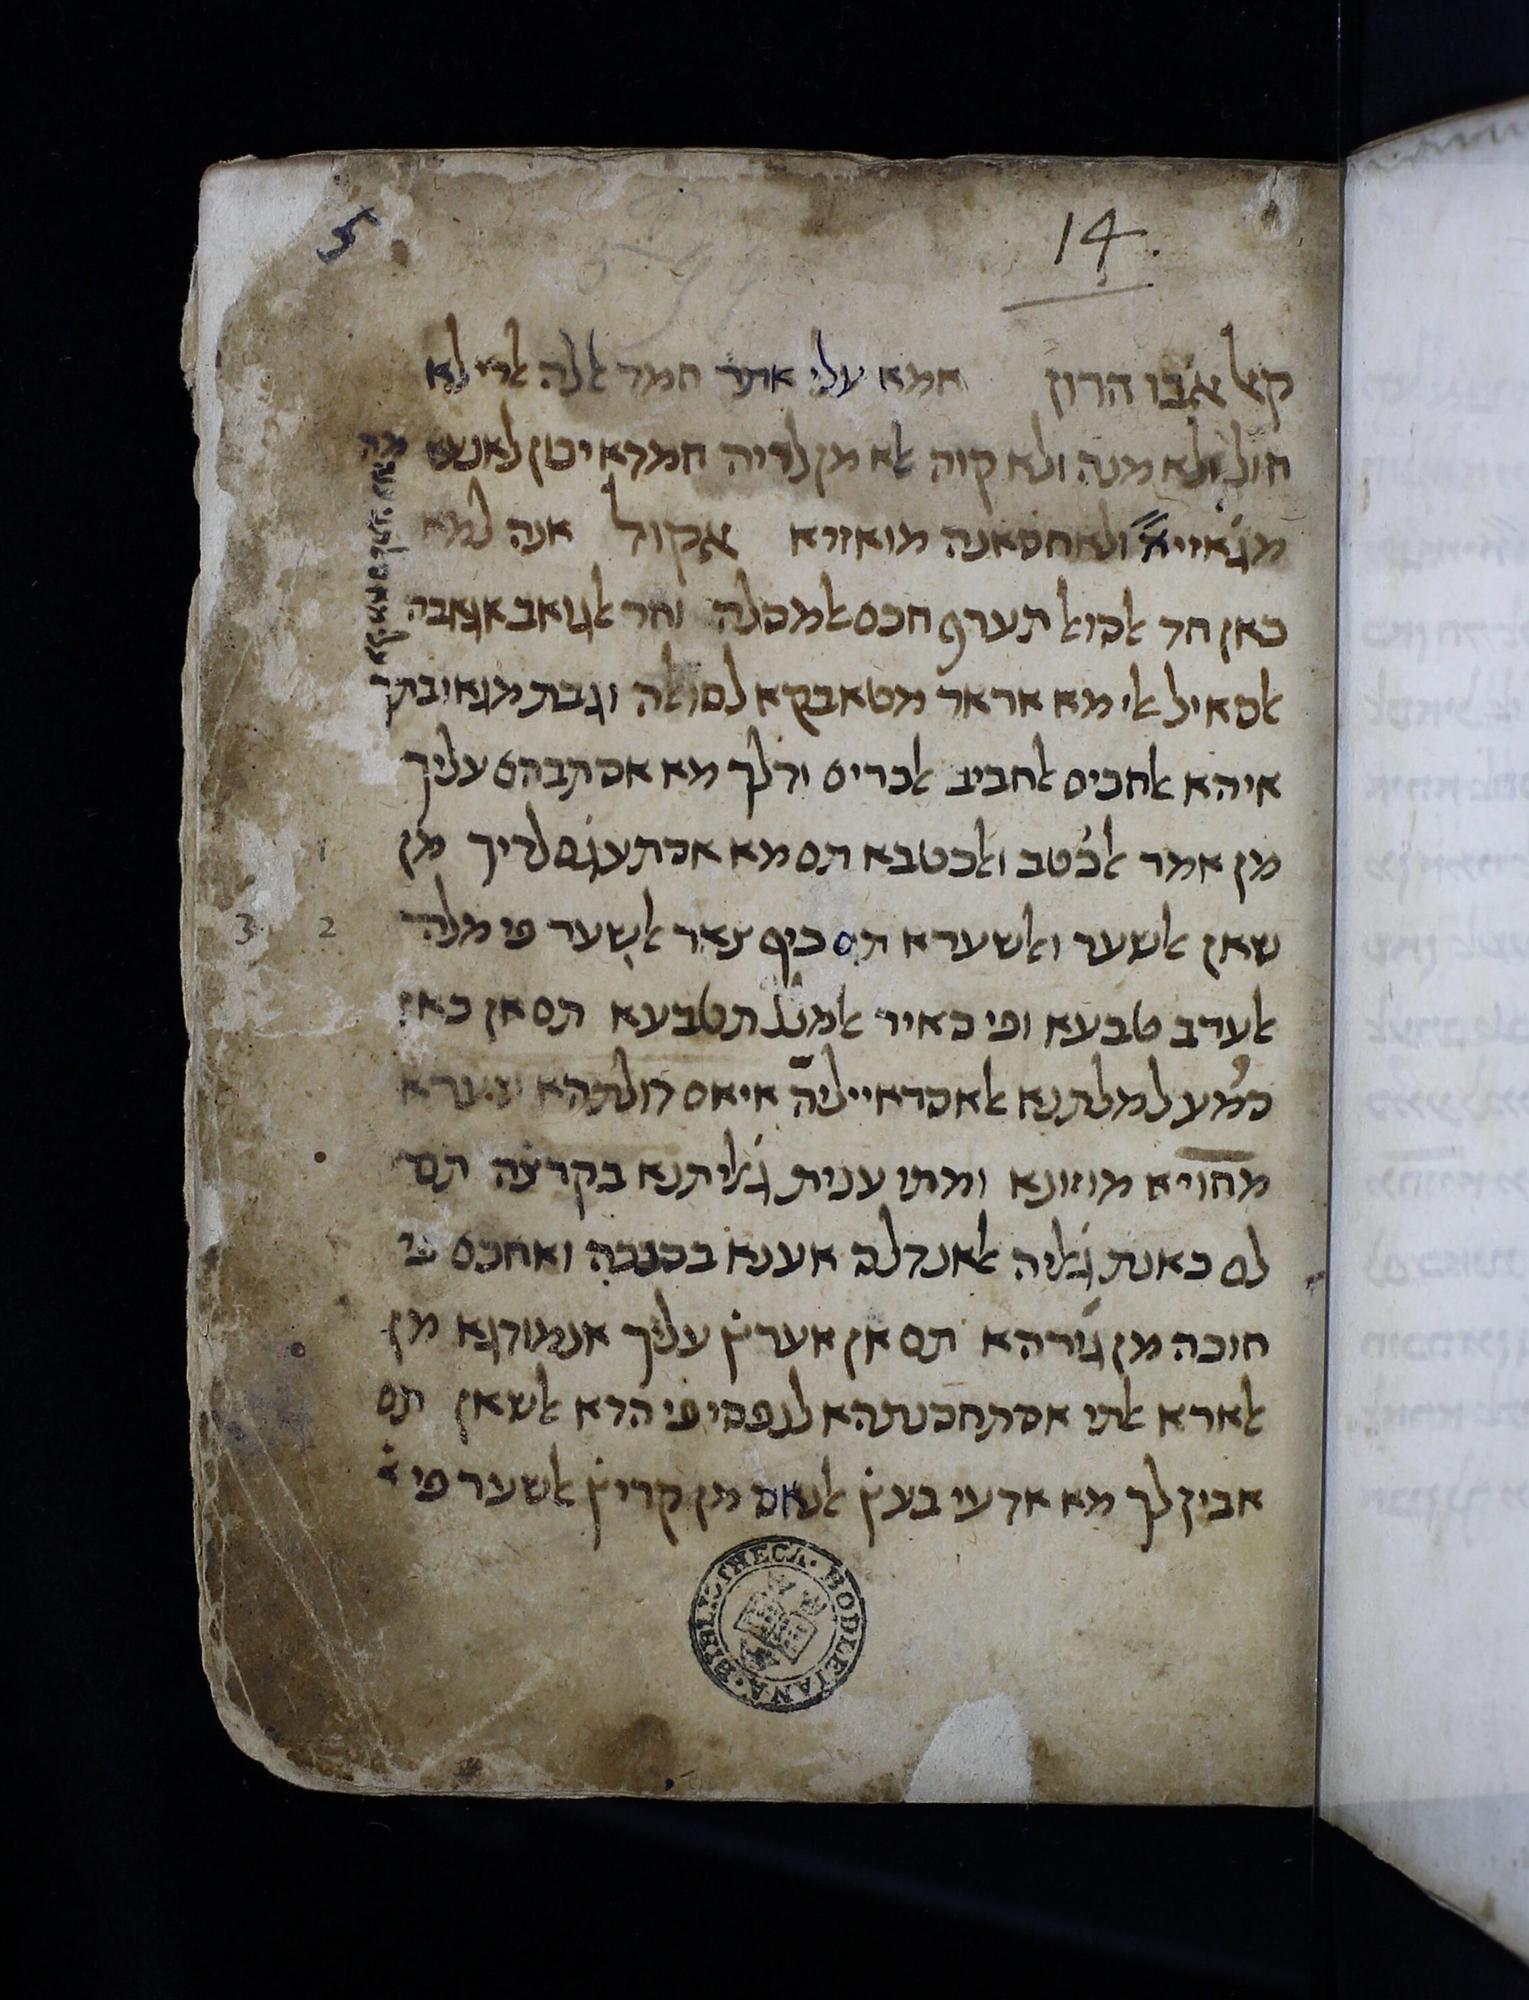 5
14.
קאל אבו הרון חמא עלי אתר חמד אללה אלדי לא
חול ולא מנה ולא קוה אלא מן לדיה חמדא יכון לאנעאמה
מגאזיא ולאחסאנה מואזרא אקול אנה למא
כאן חד אלסואל תערף חכם אלמסלה וחד אלגואב אגאבה
אלסאיל אלי מא אראד מטאבקא לסואלה וגבת מגאובתך
איהא אלחכים אלחביב אלכרים ודלך מא אסתבהם עליך
מן אמר אלכטב ואלכטבא תם מא אסתעגם לדיך מן
שאן אלשער ואלשערא תם כיף צאר אלשער פי מלה
3 2
אלערב טבעא ופי סאיר אלמלל תטבעא תם אן כאן
סמע למלתנא אלאסראייליה איאם דולתהא שערא
מחויא מוזונא ומתי ענית גאליתנא בקרצה תם
לם כאנת גאליה אלאנדלס אענא בכסבה ואחכם פי
חוכה מן גירהא תם אן אערץ עליך אנמודגא מן
אלארא אלתי אסתחסנתהא לנפסי פי הדא אלשאן תם
אבין לך מא אדעי בעץ אלנאס מן קריץ אלשער פי
BIBLIOTHECA · BODLEIANA